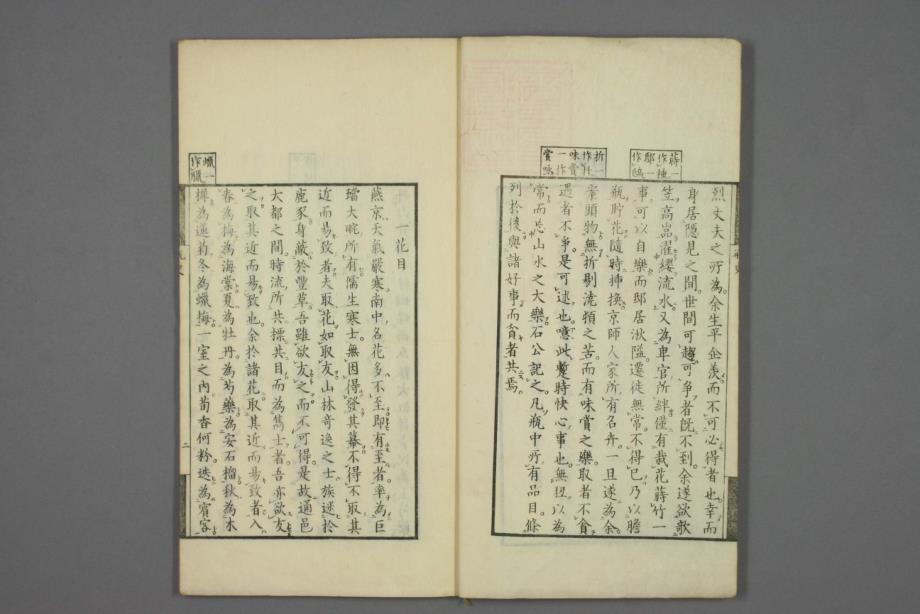 蒔一
作種
邸一
折一
味賞
一作
烈丈夫之所為余生平企羨而不可必得者也幸而
身居隱見之間世間可趨可爭者既不到余遂欲欹
笠高嵓濯纓流水又為卑官所絆僅有栽花蒔竹一
事可以自樂而邸居湫隘遷徙無常不得已乃以膽
瓶貯花隨時挿換京師人家所有名卉一旦遂為余
案頭物無折剔澆頓之苦而有味賞之樂取者不貪
遇者不爭是可述也噫此蹔時快心事也無狃以為
常而忘山水之大樂石公記之凡瓶中所有品目條
列於後與諸好事而貧者共焉。
一花目
燕京天氣嚴寒南中名花多不至即有至者率為巨
璫大畹所有儒生寒士無因得發其幕不得不取其
近而易致者夫取花如取友山林奇逸之士族迷於
鹿豕身蔽於豐草吾雖欲友之而不可得是故通邑
大都之間時流所共摽共目而為雋士者吾亦欲友
之取其近而易致也余於諸花取其近而易致者入
春為梅為海棠夏為牡丹為芍藥為安石榴秋為木
樨為蓮菊冬為蠟梅一室之內荀香何粉迭為賓客
蠟一
作臘
二